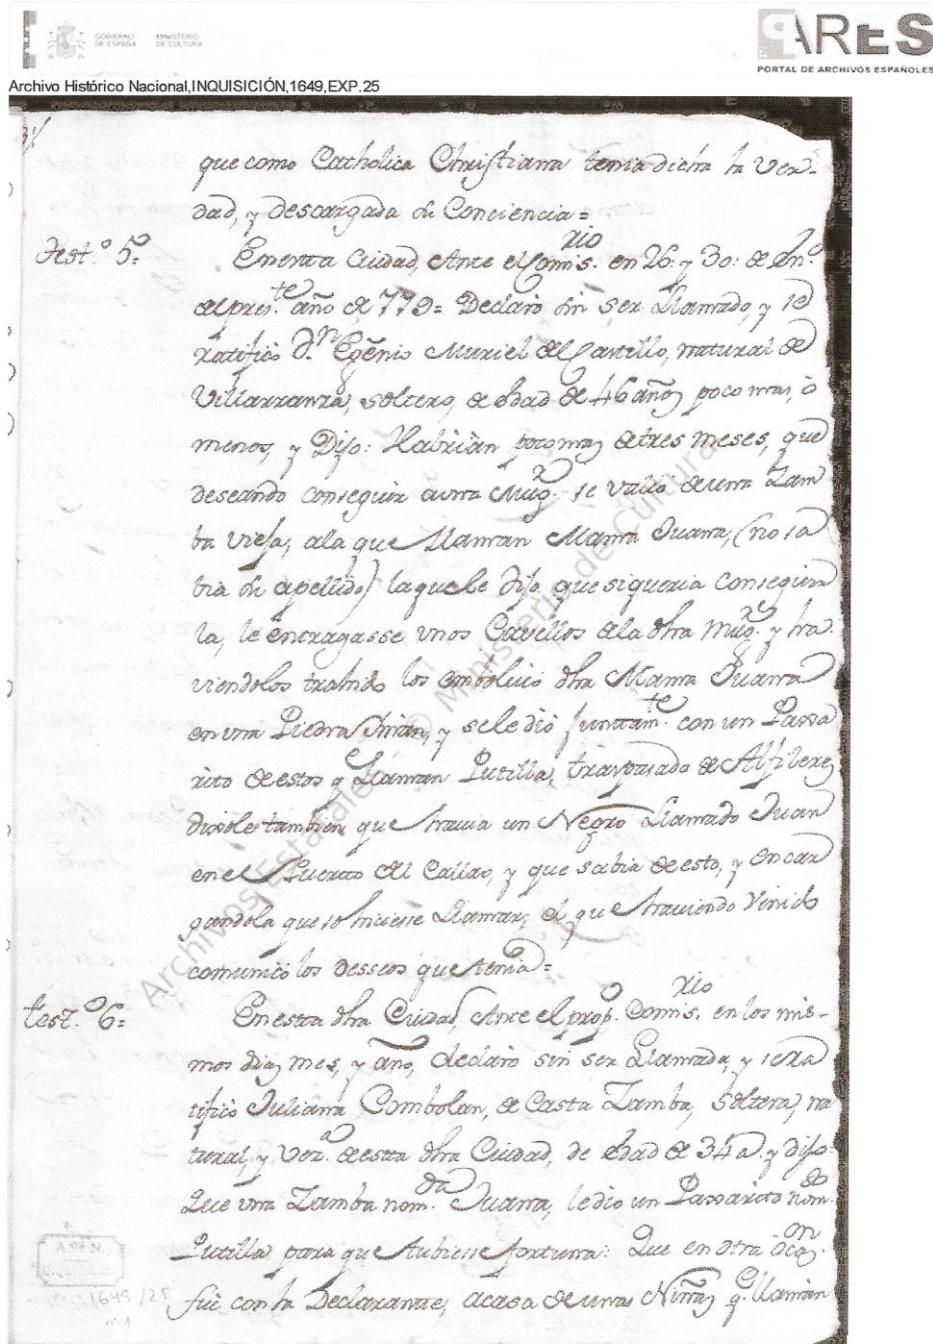 GOBIERNO DE ESPAÑA
MINISTERIO DE CULTURA
PARES
PORTAL DE ARCHIVOS ESPAÑOLES
Archivo Histórico Nacional,INQUISICIÓN,1649,EXP.25
que como Catholica Christiana tenia dicha la Ver-
dad, y descargada su Conciencia =
Test.º 5º
En esta Ciudad, Ante el Comis.rio en 26. y 30. de En.º
del pres.te año de 779= Declaró sin ser Llamado, y se
ratificó D.n Egenio Muriel del Castillo, natural de
Villarranza, soltero, de edad de 46 años poco mas, ò
menos, y Dijo: Habrian poco mas de tres meses, que
deseando conseguir auna Mug.r se valio de una Zam
ba vieja, ala que Llaman Mama Juana, (no sa
bia su apellido) la que le dijo que si queria conseguir
la, le entragasse unos Cavellos de la dha Mug.r y ha-
viendolos trahido los embolvió dha Mama Juana
en una Piedra Ymán, y se le dió juntam.te con un Paxa
rito de estos q Llaman Putilla, traspasado de Alfileres
dixole tambien que havia un Negro Llamado Juan
en el Puerto del Callao, y que sabia de esto, y encar
gandola que lo hiciese Llamar, el que haviendo Venido
comunicó los desseos que tenia=
test.º 6=
En esta dha Ciudad, Ante el prop.º Comis.rio en los mis-
mos dias, mes, y año, declaró sin ser Llamada, y se ra
tificó Juliana Combolan, de Casta Zamba, soltera, na
tural, y Vez.ª de esta dha Ciudad, de edad de 34 a. y dijo:
Que una Zamba nom.da Juana, le dio un Paxarito nom.do
Putilla para que tubiese fortuna: Que en otra ocas.on
fué con la Declarante, a casa de unas Niñas q. llaman
1649/25
© Ministerio de Cultura
Archivos Estatales